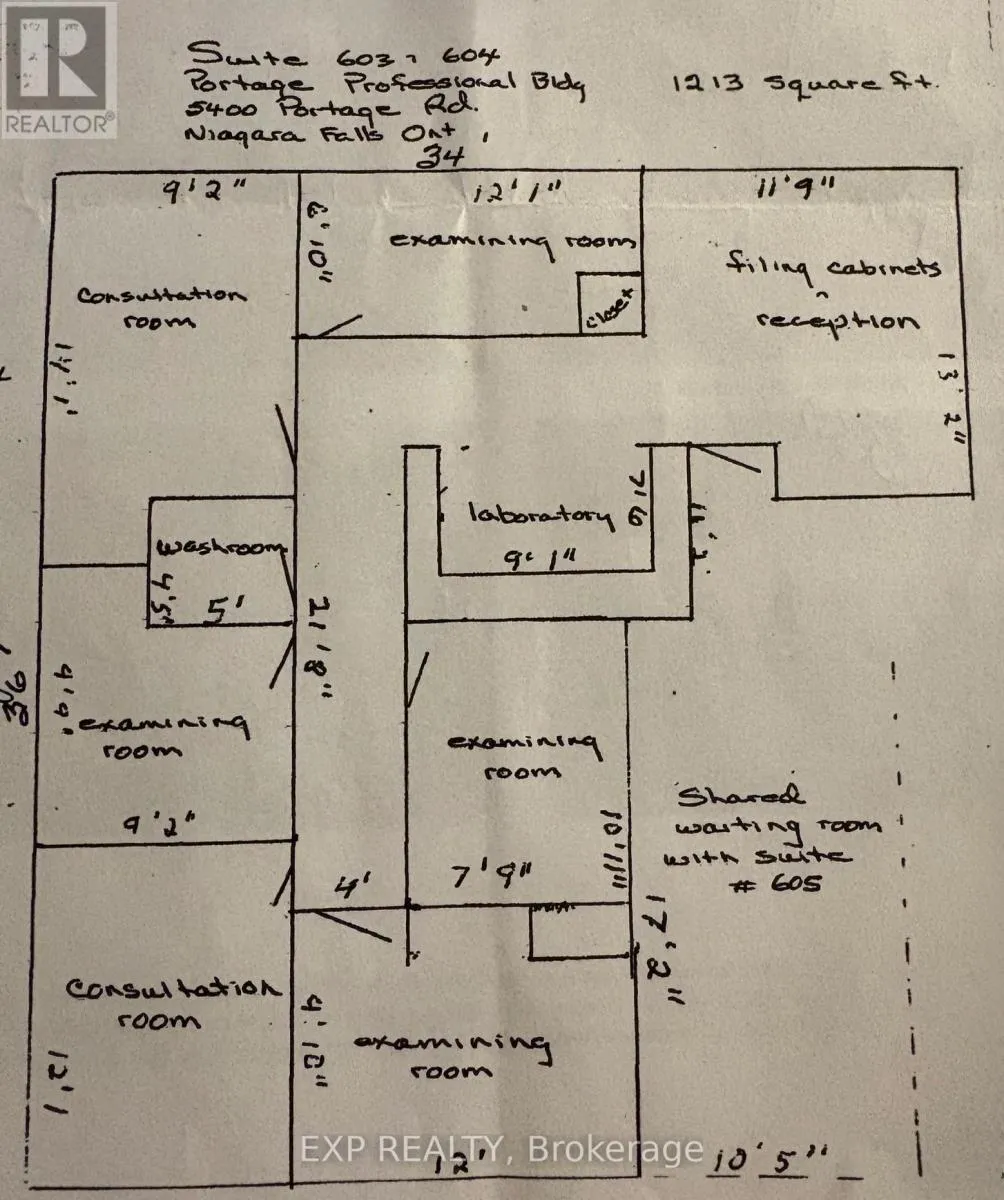 REALTOR®
Suite 603, 604
Portage Professional Bldg
1213 square ft.
5400 Portage Rd.
Niagara Falls Ont
34
9'2"
12'1"
11'9"
6'10"
examining room
filing cabinets
consultation
room
closet
reception
14'1'
13'2"
laboratory
7'6
11'2"
washroom
9'1"
4'5"
5'
21'8"
36'
9'9'
examining
room
examining
room
Shared
waiting room
with suite
# 605
9'2"
10'11"
4'
7'9"
17'2"
consultation
room
9'10"
examining
room
12'1
EXP REALTY, Brokerage
12'
10'5"